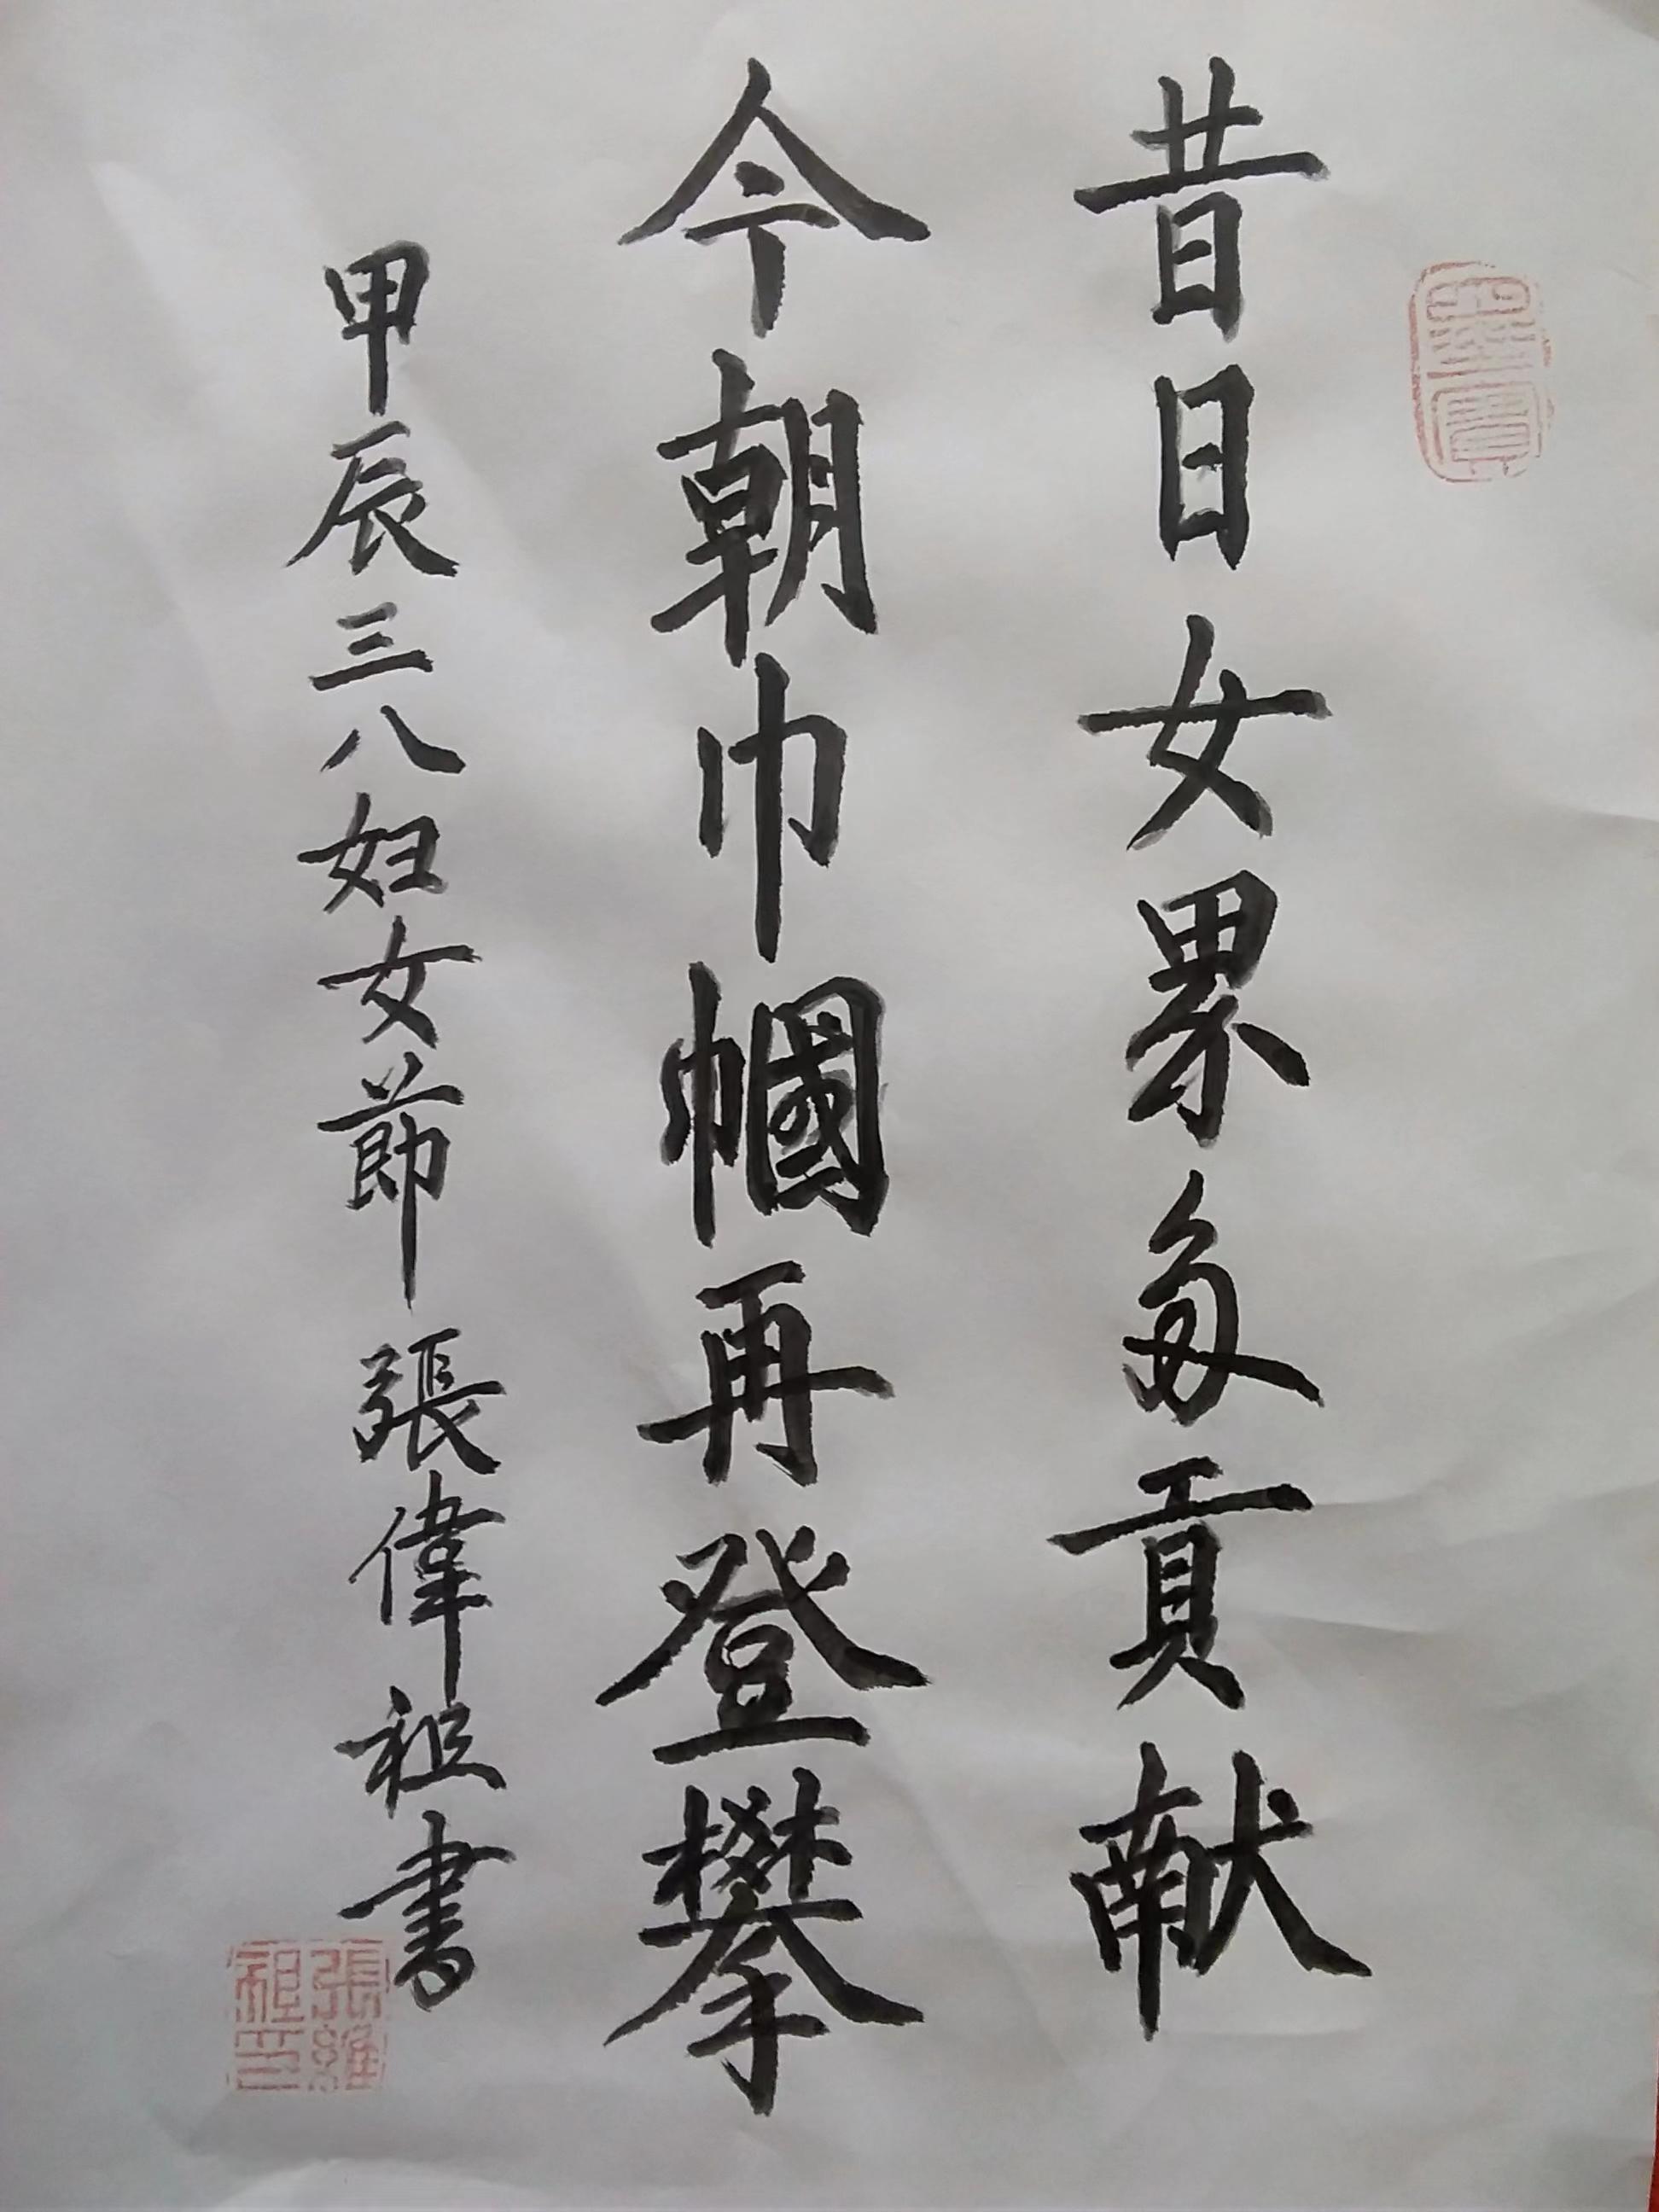 墨寶
昔日女累多貢献
今朝巾幗再登攀
甲辰三八妇女節 張偉祖書
張維祖印